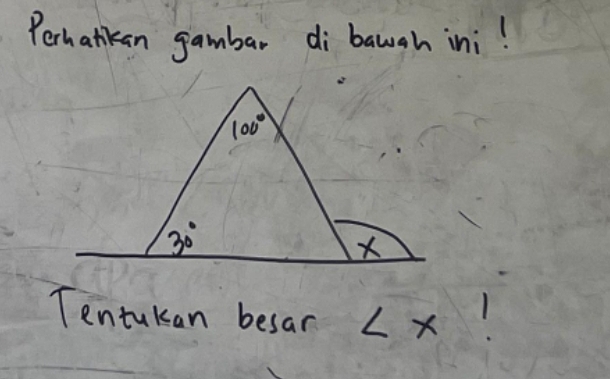 Perhatikan gambar di bawah ini !
100°
30°
x
Tentukan besar < x !